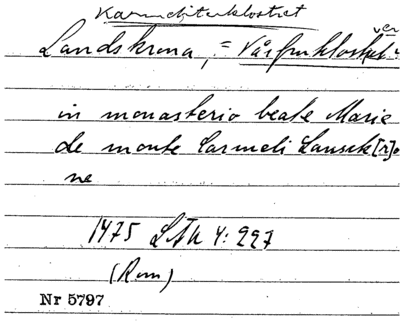 Karmeliterklostret
Landskrona, = Vårfruklostret
in monasterio beate Marie
de monte Carmeli Lansck[r]o
ne
1475 LTU 4: 227
(Rom)
Nr 5797